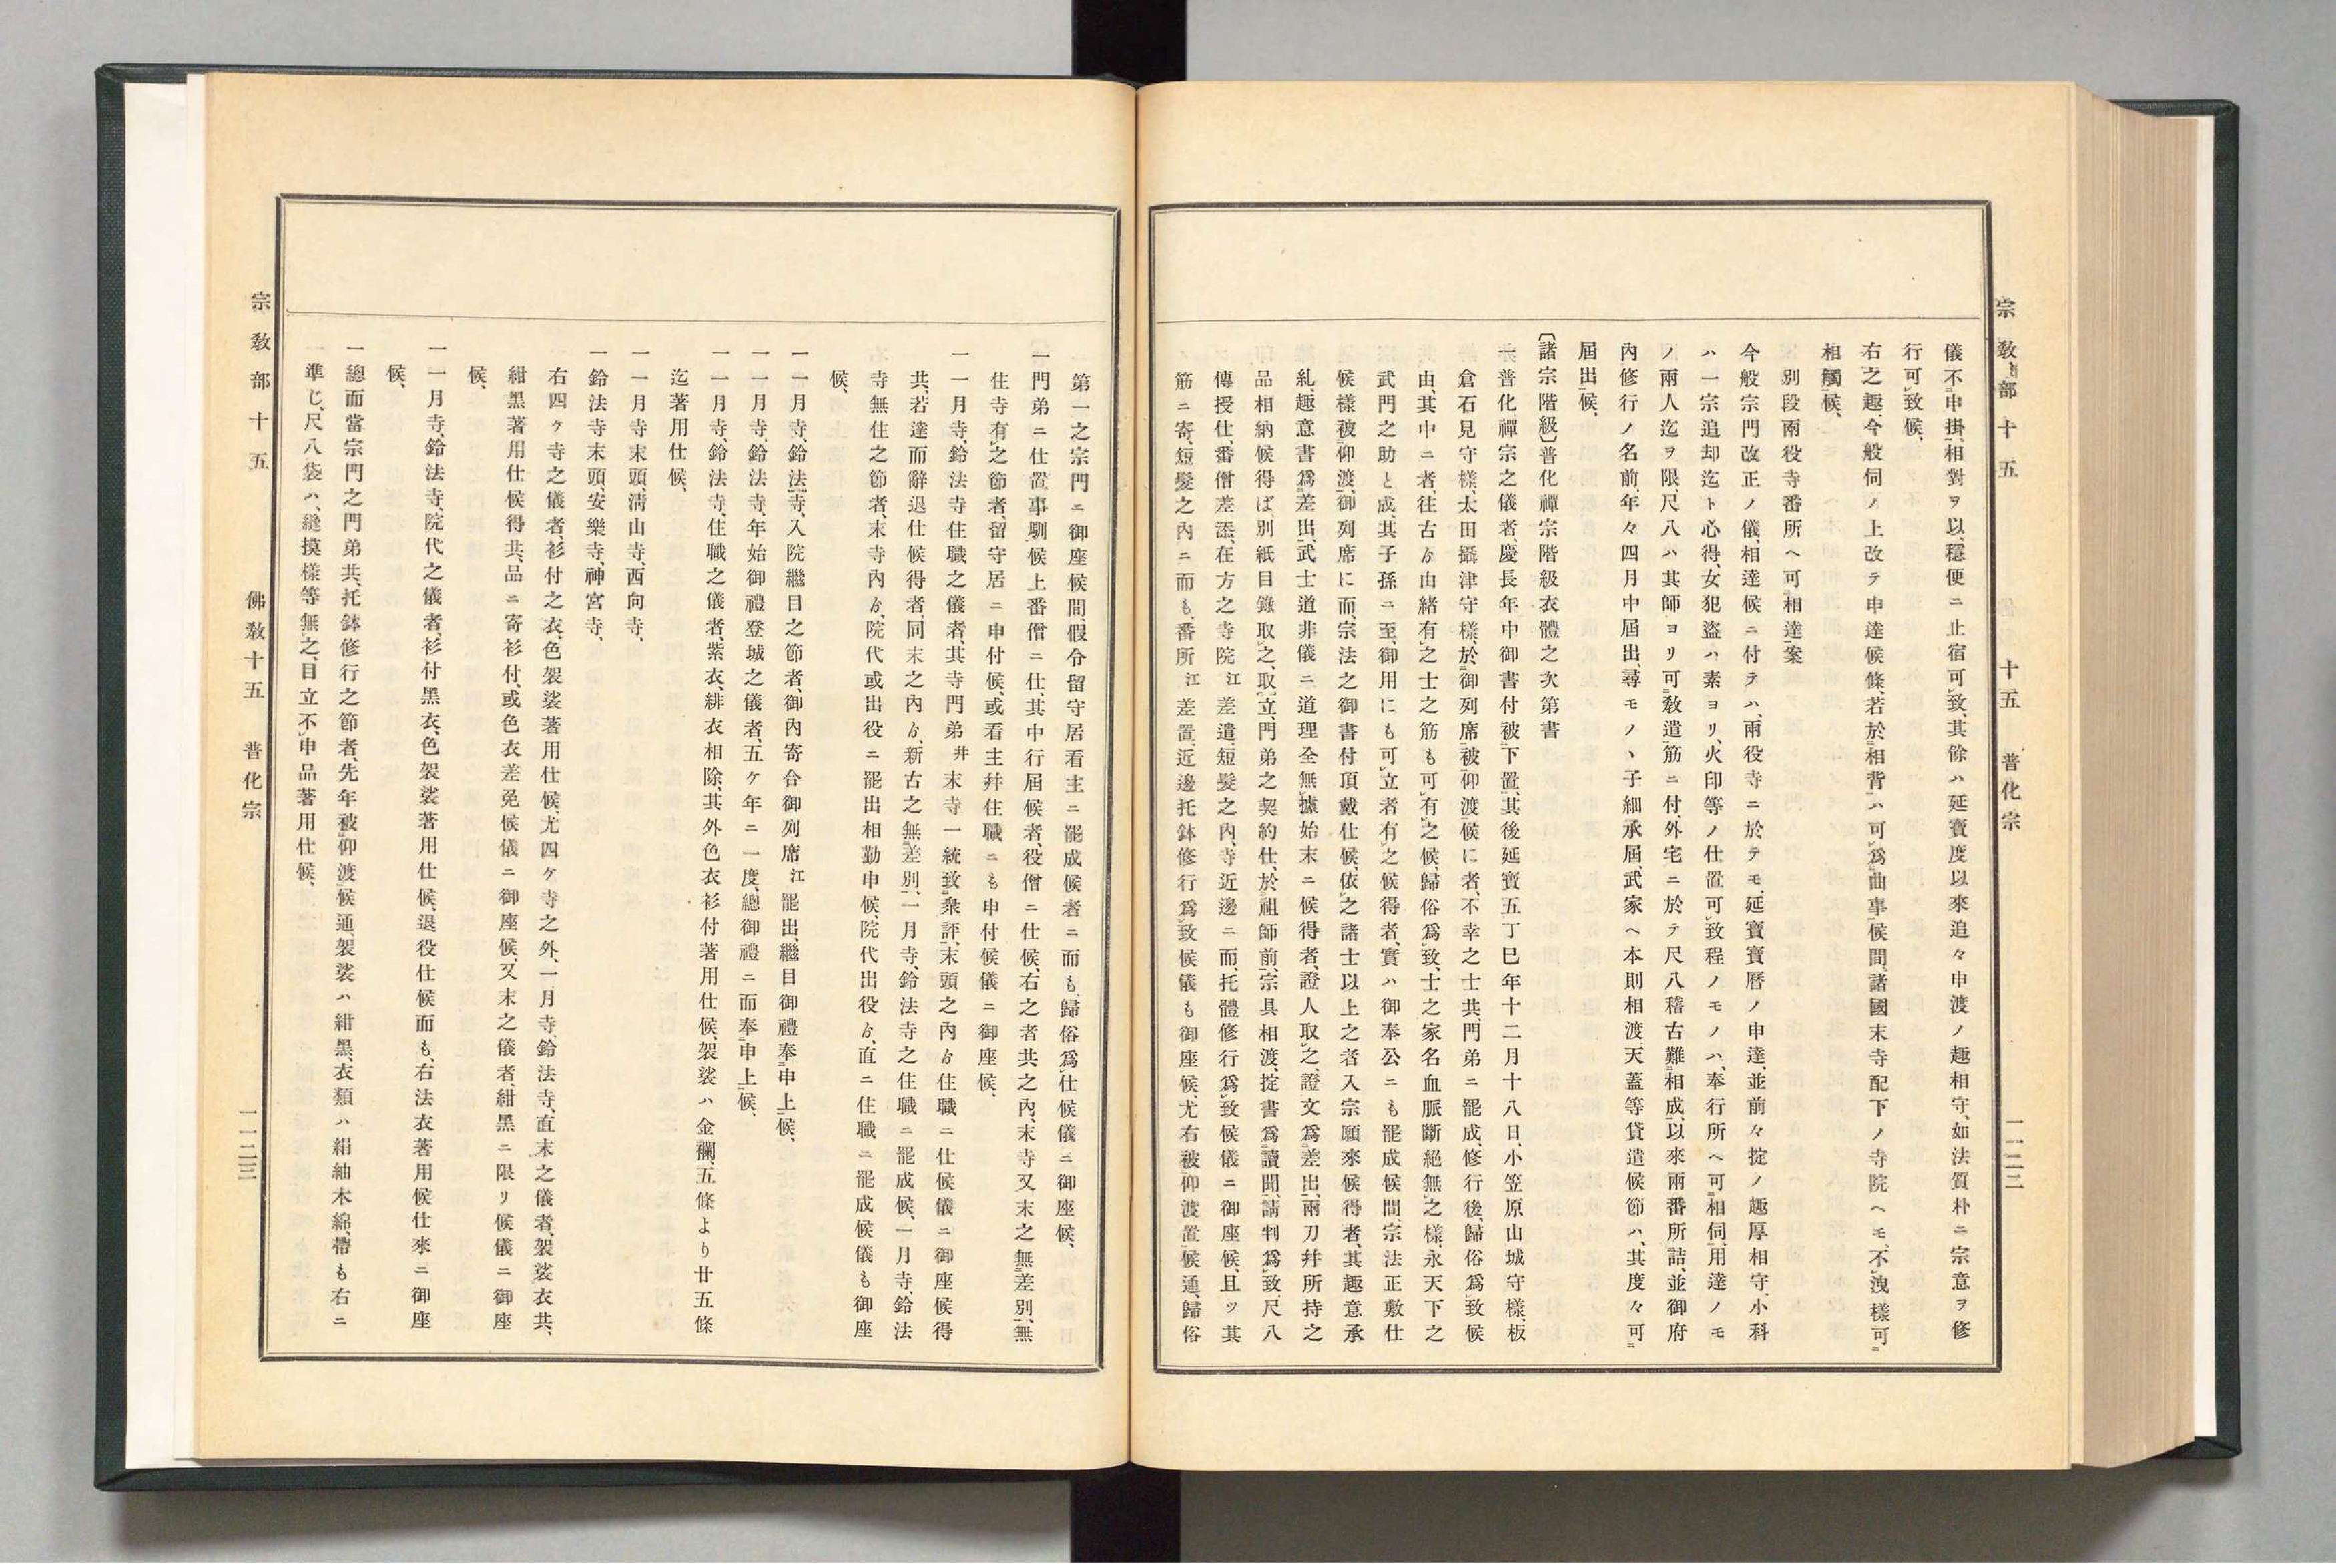 宗敎部十五　十五　普化宗　一一二二
儀不申掛、相對ヲ以、穩便ニ止宿可致、其餘ハ延寶度以來追々申渡ノ趣相守、如法質朴ニ宗意ヲ修
行可致候、
右之趣、今般伺ノ上改テ申達候條、若於相背ハ可爲曲事候間、諸國末寺配下ノ寺院ヘモ、不洩樣可
相觸候、
別段兩役寺番所ヘ可相達案
今般宗門改正ノ儀、相達候ニ付テハ、兩役寺ニ於テモ、延寶寶曆ノ申達、並前々掟ノ趣厚相守、小科
ハ一宗追却迄ト心得、女犯盜ハ素ヨリ、火印等ノ仕置可致程ノモノハ、奉行所ヘ可相伺、用達ノモ
ノ兩人迄ヲ限、尺八ハ其師ヨリ可敎遣筋ニ付、外宅ニ於テ尺八稽古難相成、以來兩番所詰、並御府
內修行ノ名前、年々四月中屆出、尋モノヽ子細承屆、武家ヘ本則相渡、天蓋等貸遣候節ハ、其度々可
屆出候、
〔諸宗階級〕普化禪宗階級衣體之次第書
一普化禪宗之儀者、慶長年中御書付被下置、其後延寶五丁巳年十二月十八日、小笠原山城守樣、板
倉石見守樣、太田攝津守樣、於御列席被仰渡候に者、不幸之士共、門弟ニ罷成、修行後、歸俗爲致候
由、其中ニ者、往古ゟ由緒有之士之筋も可有之候、歸俗爲致、士之家名血脈斷絕無之樣、永天下之
武門之助と成、其子孫ニ至、御用にも可立者有之候得者、實ハ御奉公ニも罷成候間、宗法正敷仕
候樣被仰渡、御列席に而、宗法之御書付頂戴仕候、依之諸士以上之者入宗願來候得者、其趣意承
糺、趣意書爲差出、武士道非儀ニ道理全無據始末ニ候得者、證人取之、證文爲差出、兩刀幷所持之
品相納候得ば、別紙目錄取之、取立、門弟之契約仕、於祖師前、宗具相渡、掟書爲讀聞、請判爲致、尺八
傳授仕、番僧差添、在方之寺院江差遣、短髮之內、寺近邊ニ而、托體修行爲致候儀ニ御座候、且ツ其
筋ニ寄、短髮之內ニ而も、番所江差置、近邊托鉢修行爲致候儀も御座候、尤右被仰渡置候通、歸俗
第一之宗門ニ御座候間、假令留守居看主ニ罷成候者ニ而も、歸俗爲仕候儀ニ御座候、
一門弟ニ仕置事馴候上番僧ニ仕、其中行屆候者、役僧ニ仕候、右之者共之內、末寺又末之無差別、無
住寺有之節者、留守居ニ申付候、或看主幷住職ニも申付候儀ニ御座候、
一一月寺、鈴法寺住職之儀者、其寺門弟幷末寺一統致衆評、末頭之內ゟ住職ニ仕候儀ニ御座候得
共、若達而辭退仕候得者、同末之內ゟ、新古之無差別、一月寺、鈴法寺之住職ニ罷成候、一月寺、鈴法
寺無住之節者、末寺內ゟ、院代或出役ニ罷出相勤申候、院代出役ゟ、直ニ住職ニ罷成候儀も御座
候、
一一月寺、鈴法寺、入院繼目之節者、御內寄合御列席江罷出繼目御禮奉申上候、
一一月寺、鈴法寺、年始御禮登城之儀者、五ケ年ニ一度、總御禮ニ而奉申上候、
一一月寺、鈴法寺、住職之儀者、紫衣、緋衣相除、其外色衣衫付著用仕候、袈裟ハ金襴、五條より廿五條
迄著用仕候、
一一月寺末頭、淸山寺、西向寺、
一鈴法寺末頭、安樂寺、神宮寺、
右四ケ寺之儀者、衫付之衣、色袈裟著用仕候、尤四ケ寺之外、一月寺鈴法寺、直末之儀者、袈裟衣共、
紺黑著用仕候得共、品ニ寄衫付、或色衣差免候儀ニ御座候、又末之儀者、紺黑ニ限リ候儀ニ御座
候、
一一月寺、鈴法寺、院代之儀者、衫付黑衣、色袈裟著用仕候、退役仕候而も、右法衣著用候仕來ニ御座
候、
一總而當宗門之門弟共、托鉢修行之節者、先年被仰渡候通、袈裟ハ紺黑、衣類ハ絹紬木綿、帶も右ニ
準じ、尺八袋ハ、縫摸樣等無之、目立不申品著用仕候、
宗敎部十五　佛敎十五　普化宗　一一二三